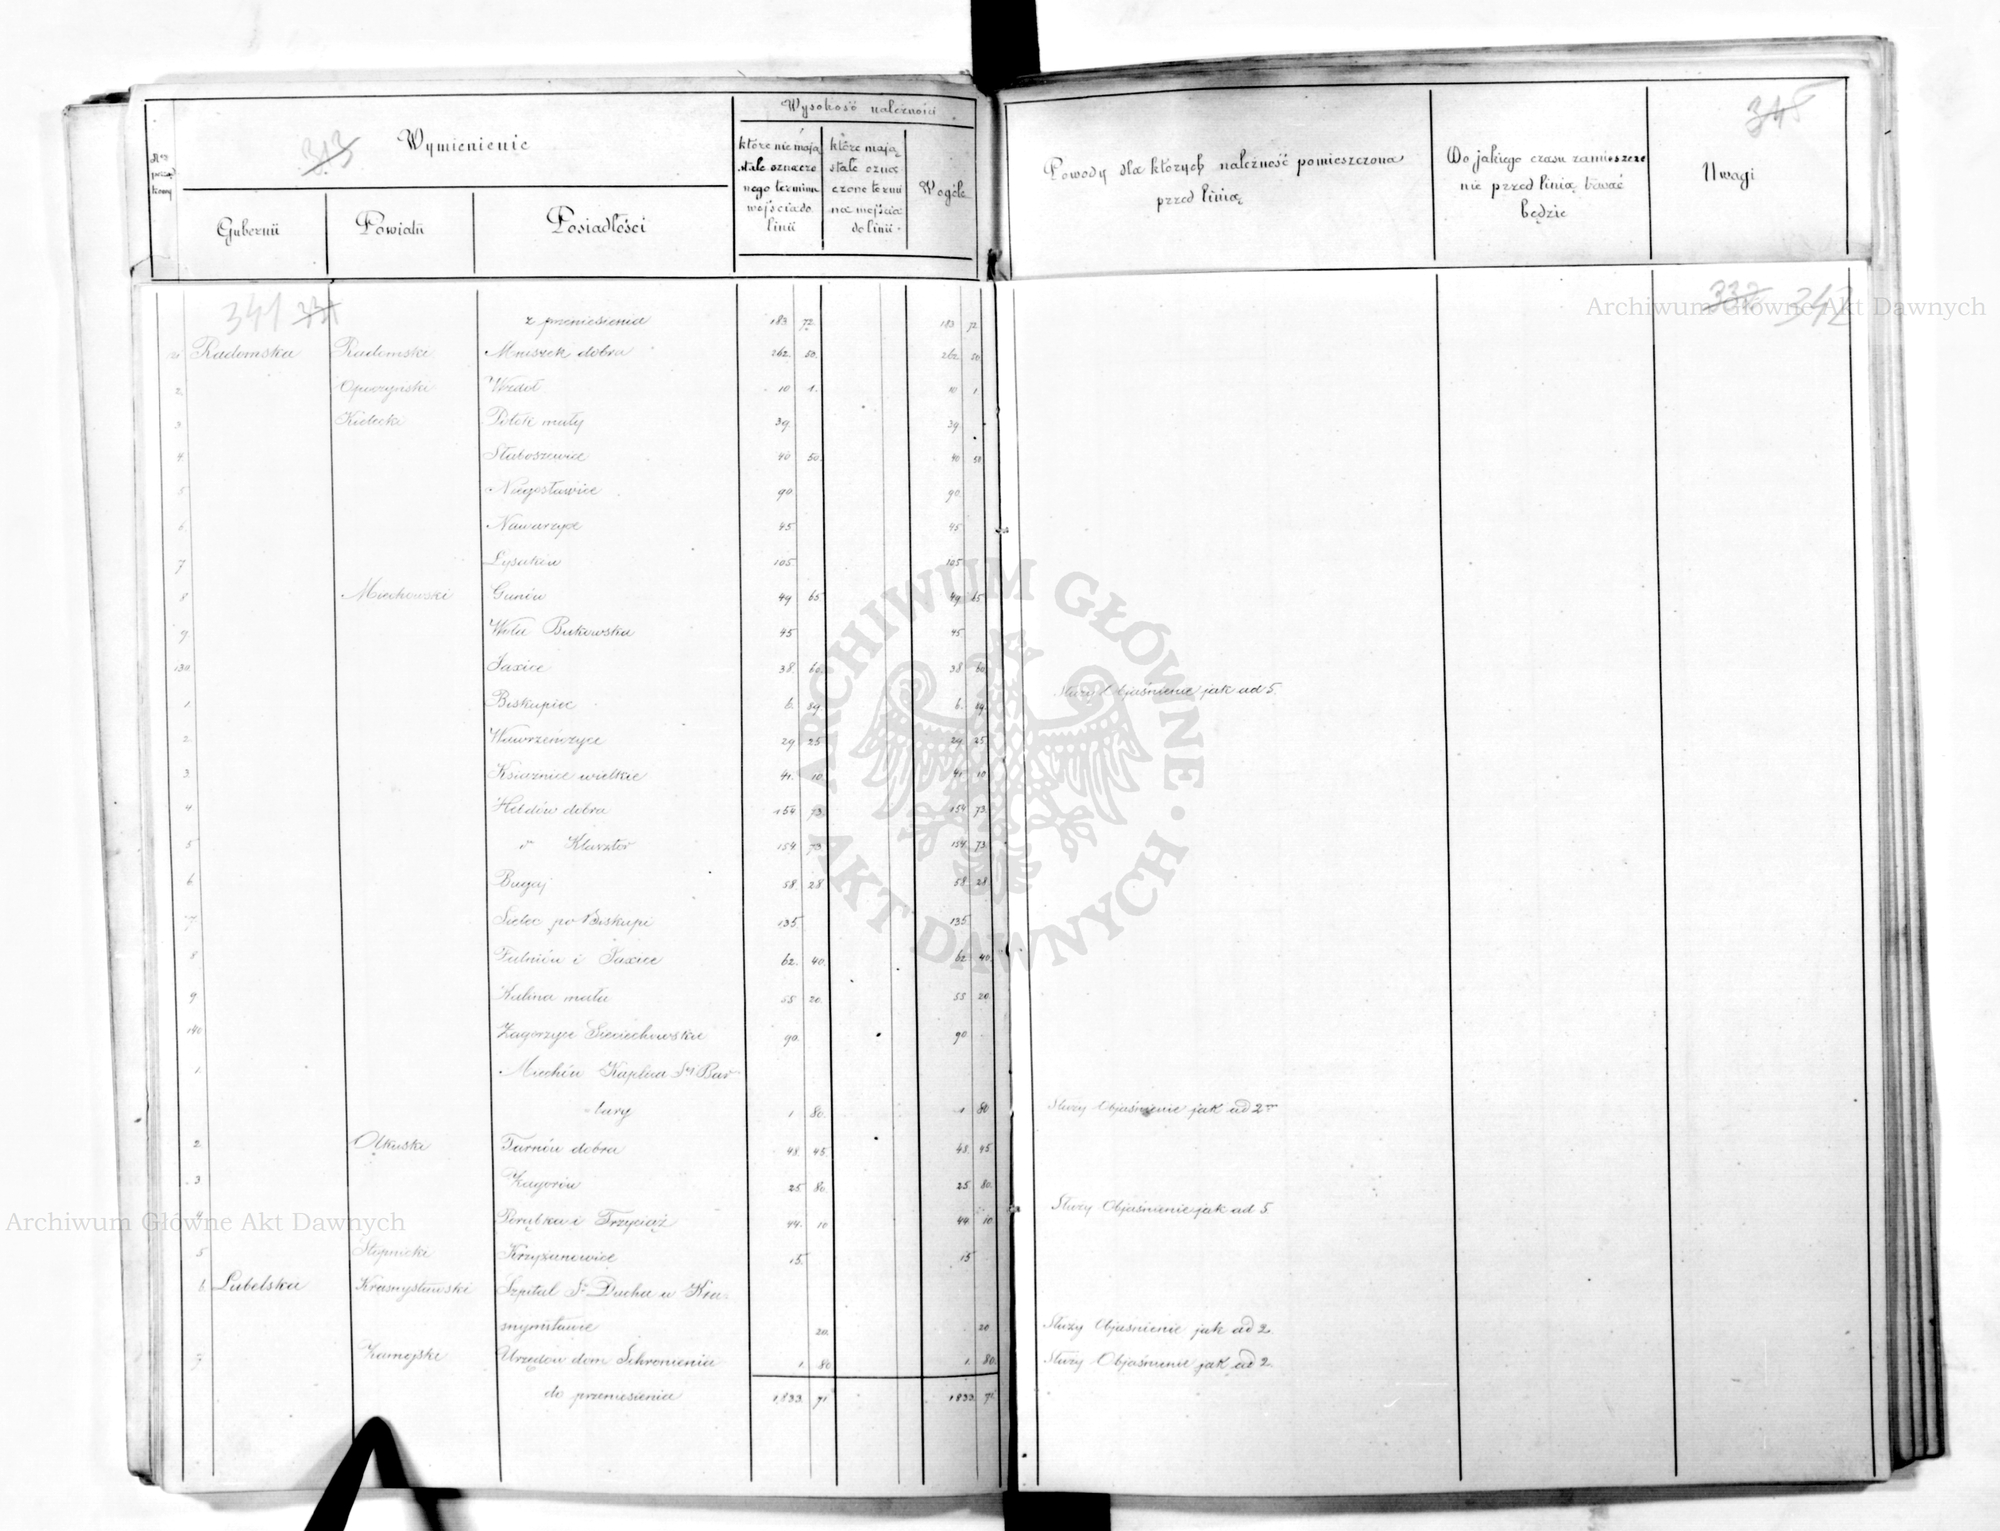 Wysokość należności
345
Nr porządkowy
313
Wymienienie
które nie mają stale oznaczonego terminu wejścia do linii
które mają stale oznaczone terminа wejścia do linii.
Wogóle
Powody dla których należność pomieszczona przed linią
Do jakiego czasu zamieszczenie przed linią trwać będzie
Uwagi
Gubernii
Powiatu
Posiadłości
341 331
332 342
z przeniesienia 183 72 183 72
Radomska Radomski Mniszek dobra 262. 50. 262. 50
2 Opoczyński Wzdół 10 1. 10 1
3 Kielecki Potok mały 39 39
4 Słaboszewice 40 50. 40 50
5 Nagosławice 90. 90.
6 Nawarzyce 45 45
7 Łysaków 105 105
8 Miechowski Gunów 49 65 49 65
9 Wola Bukowska 45 45
130 Jaxice 38. 60. 38 60
1. Biskupiec 6. 89. 6. 89. Służy Objaśnienie jak ad 5.
2. Wawrzeńczyce 29 25 29 25
3. Ksiaznice wielkie 41. 10. 41 10
4 Hebdów dobra 154 73. 154 73.
5 d° Klasztor 154 73 154. 73
6 Bugaj 58. 28. 58. 28
7 Sielec po Biskupi 135. 135.
8 i Jaxice 62. 40. 62 40.
9 Kalina mała 55 20. 55 20.
140 Zagorzyce Sieciechowskie 90. 90
1. Miechów Kaplica Sej Bar-
bary 1 80. 1 80 Służy Objaśnienie jak ad 2
2 Olkuski Tarnów dobra 48. 45. 48. 45
3 Zagorów 25 80. 25 80.
4 Porąbka i Trzyciąż 44. 10 44. 10 Służy Objaśnienie jak ad 5.
5 Stopnicki Krzyzanowice 15. 15
6. Lubelska Krasnystawski Szpital S° Ducha w Kra-
snymstawie 20. 20 Służy Objaśnienie jak ad 2.
7 Zamojski Urzędów dom Schronienia 1. 80 1. 80. Służy Objaśnienie jak ad 2.
do przeniesienia 1833. 71 1833. 71
Archiwum Główne Akt Dawnych
Archiwum Główne Akt Dawnych
ARCHIWUM GŁÓWNE • AKT DAWNYCH •